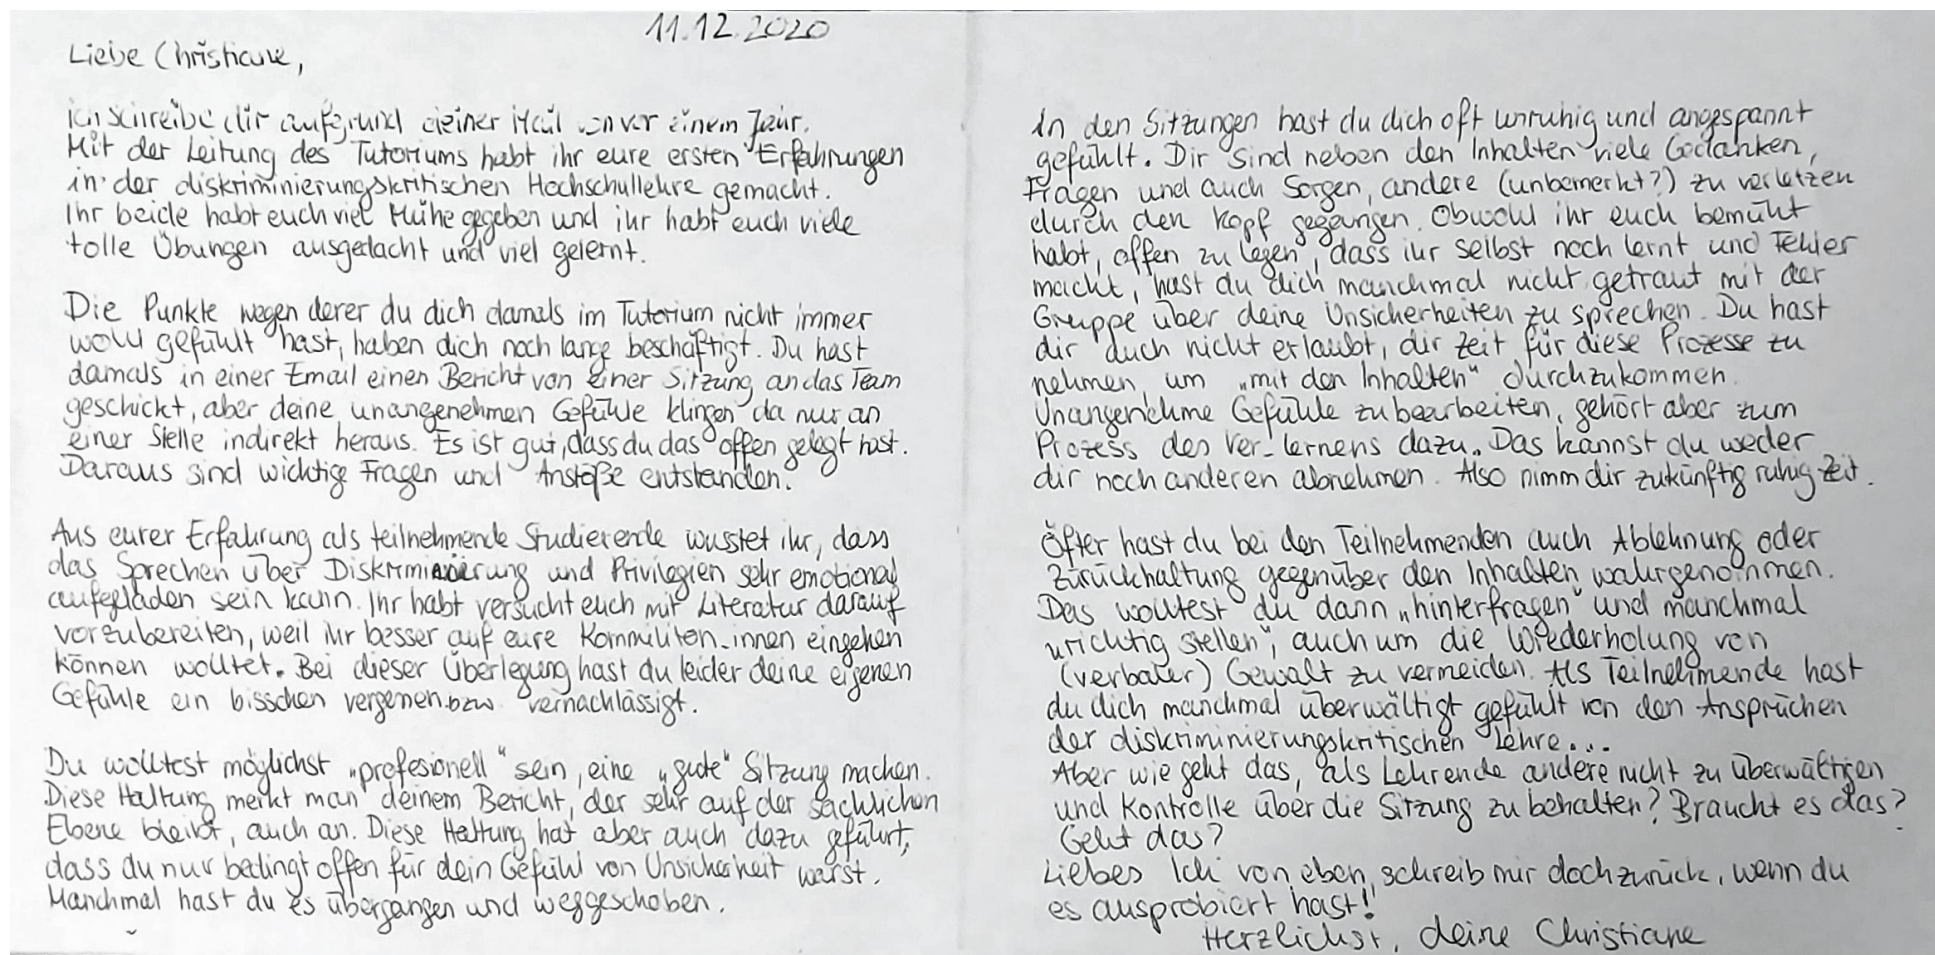 11.12.2020
Liebe Christiane,
ich schreibe dir aufgrund deiner Mail von vor einem Jahr.
Mit der Leitung des Tutoriums habt ihr eure ersten Erfahrungen
in der diskriminierungskritischen Hochschullehre gemacht.
Ihr beide habt euch viel Mühe gegeben und ihr habt euch viele
tolle Übungen ausgedacht und viel gelernt.
Die Punkte wegen derer du dich damals im Tutorium nicht immer
wohl gefühlt hast, haben dich noch lange beschäftigt. Du hast
damals in einer Email einen Bericht von einer Sitzung an das Team
geschickt, aber deine unangenehmen Gefühle klingen da nur an
einer Stelle indirekt heraus. Es ist gut, dass du das offen gelegt hast.
Daraus sind wichtige Fragen und Anstöße entstanden.
Aus eurer Erfahrung als teilnehmende Studierende wusstet ihr, dass
das Sprechen über Diskriminierung und Privilegien sehr emotional
aufgeladen sein kann. Ihr habt versucht euch mit Literatur darauf
vorzubereiten, weil ihr besser auf eure Kommiliton_innen eingehen
können wolltet. Bei dieser Überlegung hast du leider deine eigenen
Gefühle ein bisschen vergessen bzw. vernachlässigt.
Du wolltest möglichst „profesionell“ sein, eine „gute“ Sitzung machen.
Diese Haltung merkt man deinem Bericht, der sehr auf der sachlichen
Ebene bleibt, auch an. Diese Haltung hat aber auch dazu geführt,
dass du nur bedingt offen für dein Gefühl von Unsicherheit warst.
Manchmal hast du es übergangen und weggeschoben.
In den Sitzungen hast du dich oft unruhig und angespannt
gefühlt. Dir sind neben den Inhalten viele Gedanken,
Fragen und auch Sorgen, andere (unbemerkt?) zu verletzen
durch den Kopf gegangen. Obwohl ihr euch bemüht
habt, offen zu legen, dass ihr selbst noch lernt und Fehler
macht, hast du dich manchmal nicht getraut mit der
Gruppe über deine Unsicherheiten zu sprechen. Du hast
dir auch nicht erlaubt, dir Zeit für diese Prozesse zu
nehmen, um „mit den Inhalten“ durchzukommen.
Unangenehme Gefühle zu bearbeiten, gehört aber zum
Prozess des Ver_lernens dazu. Das kannst du weder
dir noch anderen abnehmen. Also nimm dir zukünftig ruhig Zeit.
Öfter hast du bei den Teilnehmenden auch Ablehnung oder
Zurückhaltung gegenüber den Inhalten wahrgenommen.
Das wolltest du dann „hinterfragen“ und manchmal
„richtig stellen“, auch um die Wiederholung von
(verbaler) Gewalt zu vermeiden. Als Teilnehmende hast
du dich manchmal überwältigt gefühlt von den Ansprüchen
der diskriminierungskritischen Lehre...
Aber wie geht das, als Lehrende andere nicht zu überwältigen
und Kontrolle über die Sitzung zu behalten? Braucht es das?
Geht das?
Liebes Ich von eben, schreib mir doch zurück, wenn du
es ausprobiert hast!
Herzlichst, deine Christiane